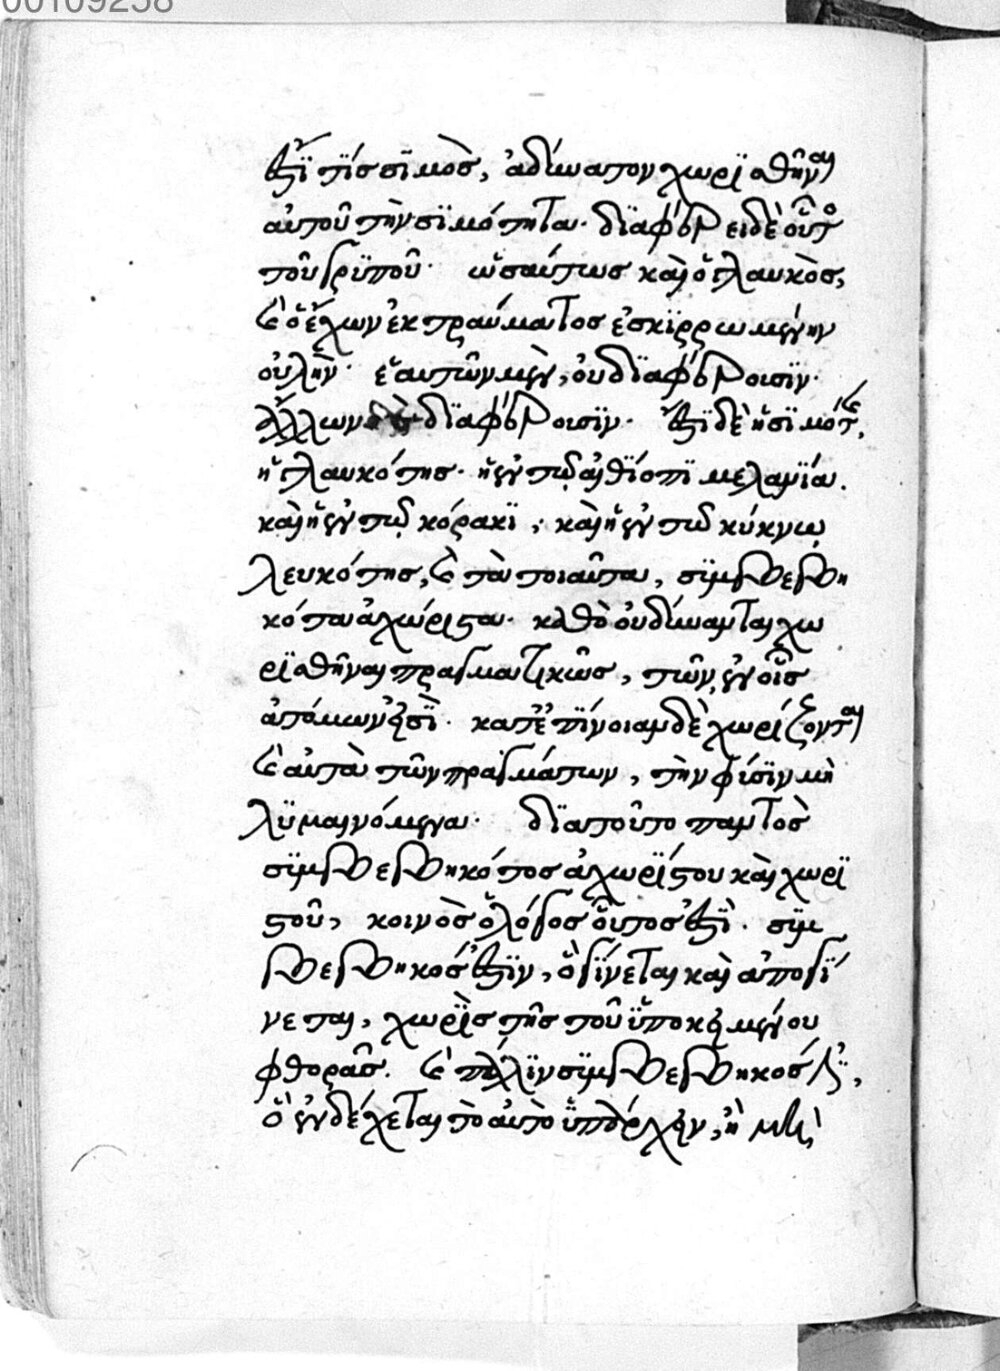 00109258
ἐστί τίς σιμὸς, ἀδύνατον χωρισθῆναι
αὐτοῦ τὴν σιμότητα· διαφέρει δὲ οὗτος
τοῦ γρυποῦ· ὡσαύτως καὶ ὁ γλαυκὸς,
καὶ ὁ ἔχων ἐκ τραύματος ἐσκιρρωμένην
οὐλὴν· ἑαυτῶν μὲν, οὐ διαφέρουσιν·
ἄλλων δὲ διαφέρουσιν· ἔστι δὲ ἡ σιμότης,
ἡ γλαυκότης· ἡ ἐν τῷ αἰθίοπι μελανία.
καὶ ἡ ἐν τῷ κόρακι, καὶ ἡ ἐν τῷ κύκνῳ
λευκότης, καὶ τὰ τοιαῦτα, συμβεβη
κότα ἀχώριστα· καθὸ οὐ δύνανται χω
ρισθῆναι πραγματικῶς, τῶν ἐν οἷς
ἀπάντων εἰσὶ· κατ' ἐπίνοιαν δὲ χωρίζονται
καὶ αὐτὰ τῶν πραγμάτων, τὴν φύσιν μὴ
λυμαινόμενα· διὰ τοῦτο παντὸς
συμβεβηκότος ἀχωρίστου καὶ χωρι
στοῦ, κοινὸς ὁ λόγος οὗτος ἐστὶ· συμ
βεβηκός ἐστιν, ὃ γίνεται καὶ ἀπογί
νεται, χωρὶς τῆς τοῦ ὑποκειμένου
φθορᾶς. καὶ πάλιν συμβεβηκός ἐστι,
ὃ ἐνδέχεται τὸ αὐτὸ ὑπάρχειν, ἢ μὴ,